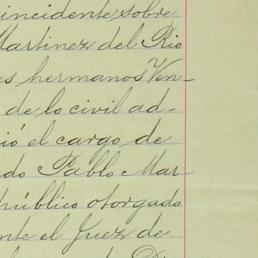 incidente sobre
Martinez del Rio
es hermanos Ven-
de lo civil ad-
ió el cargo de
do Pablo Mar-
público otorgado
nte el Juez de